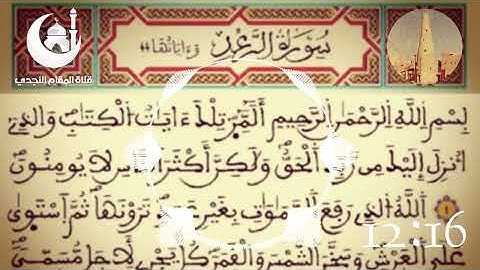 قناة المقام النجدي
سُورَةُ الرَّعْدِ وَءَايَاتُهَا
بِسْمِ اِللَّهِ اِلرَّحْمَٰنِ اِلرَّحِيمِ أَلَٓمِّٓرۖ تِلْكَ ءَايَٰتُ اُلْكِتَٰبِ وَالذِےٓ
أُنزِلَ إِلَيْكَ مِن رَّبِّكَ اَلْحَقُّ وَلَٰكِنَّ أَكْثَرَ اَلنَّاسِ لَا يُومِنُونَ
اَللَّهُ اُلذِے رَفَعَ اَلسَّمَٰوَٰتِ بِغَيْرِ عَمَدٍ تَرَوْنَهَا ثُمَّ اَسْتَوَىٰ
عَلَى اَلْعَرْشِ وَسَخَّرَ اَلشَّمْسَ وَالْقَمَرَ كُلٌّ يَجْرِے لِأَجَلٍ مُّسَمّىً
12:16